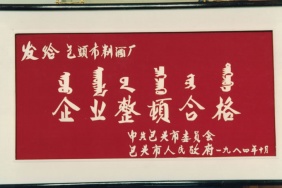 发给包头市制酒厂
企业整顿合格
中共包头市委员会
包头市人民政府一九八四年十月